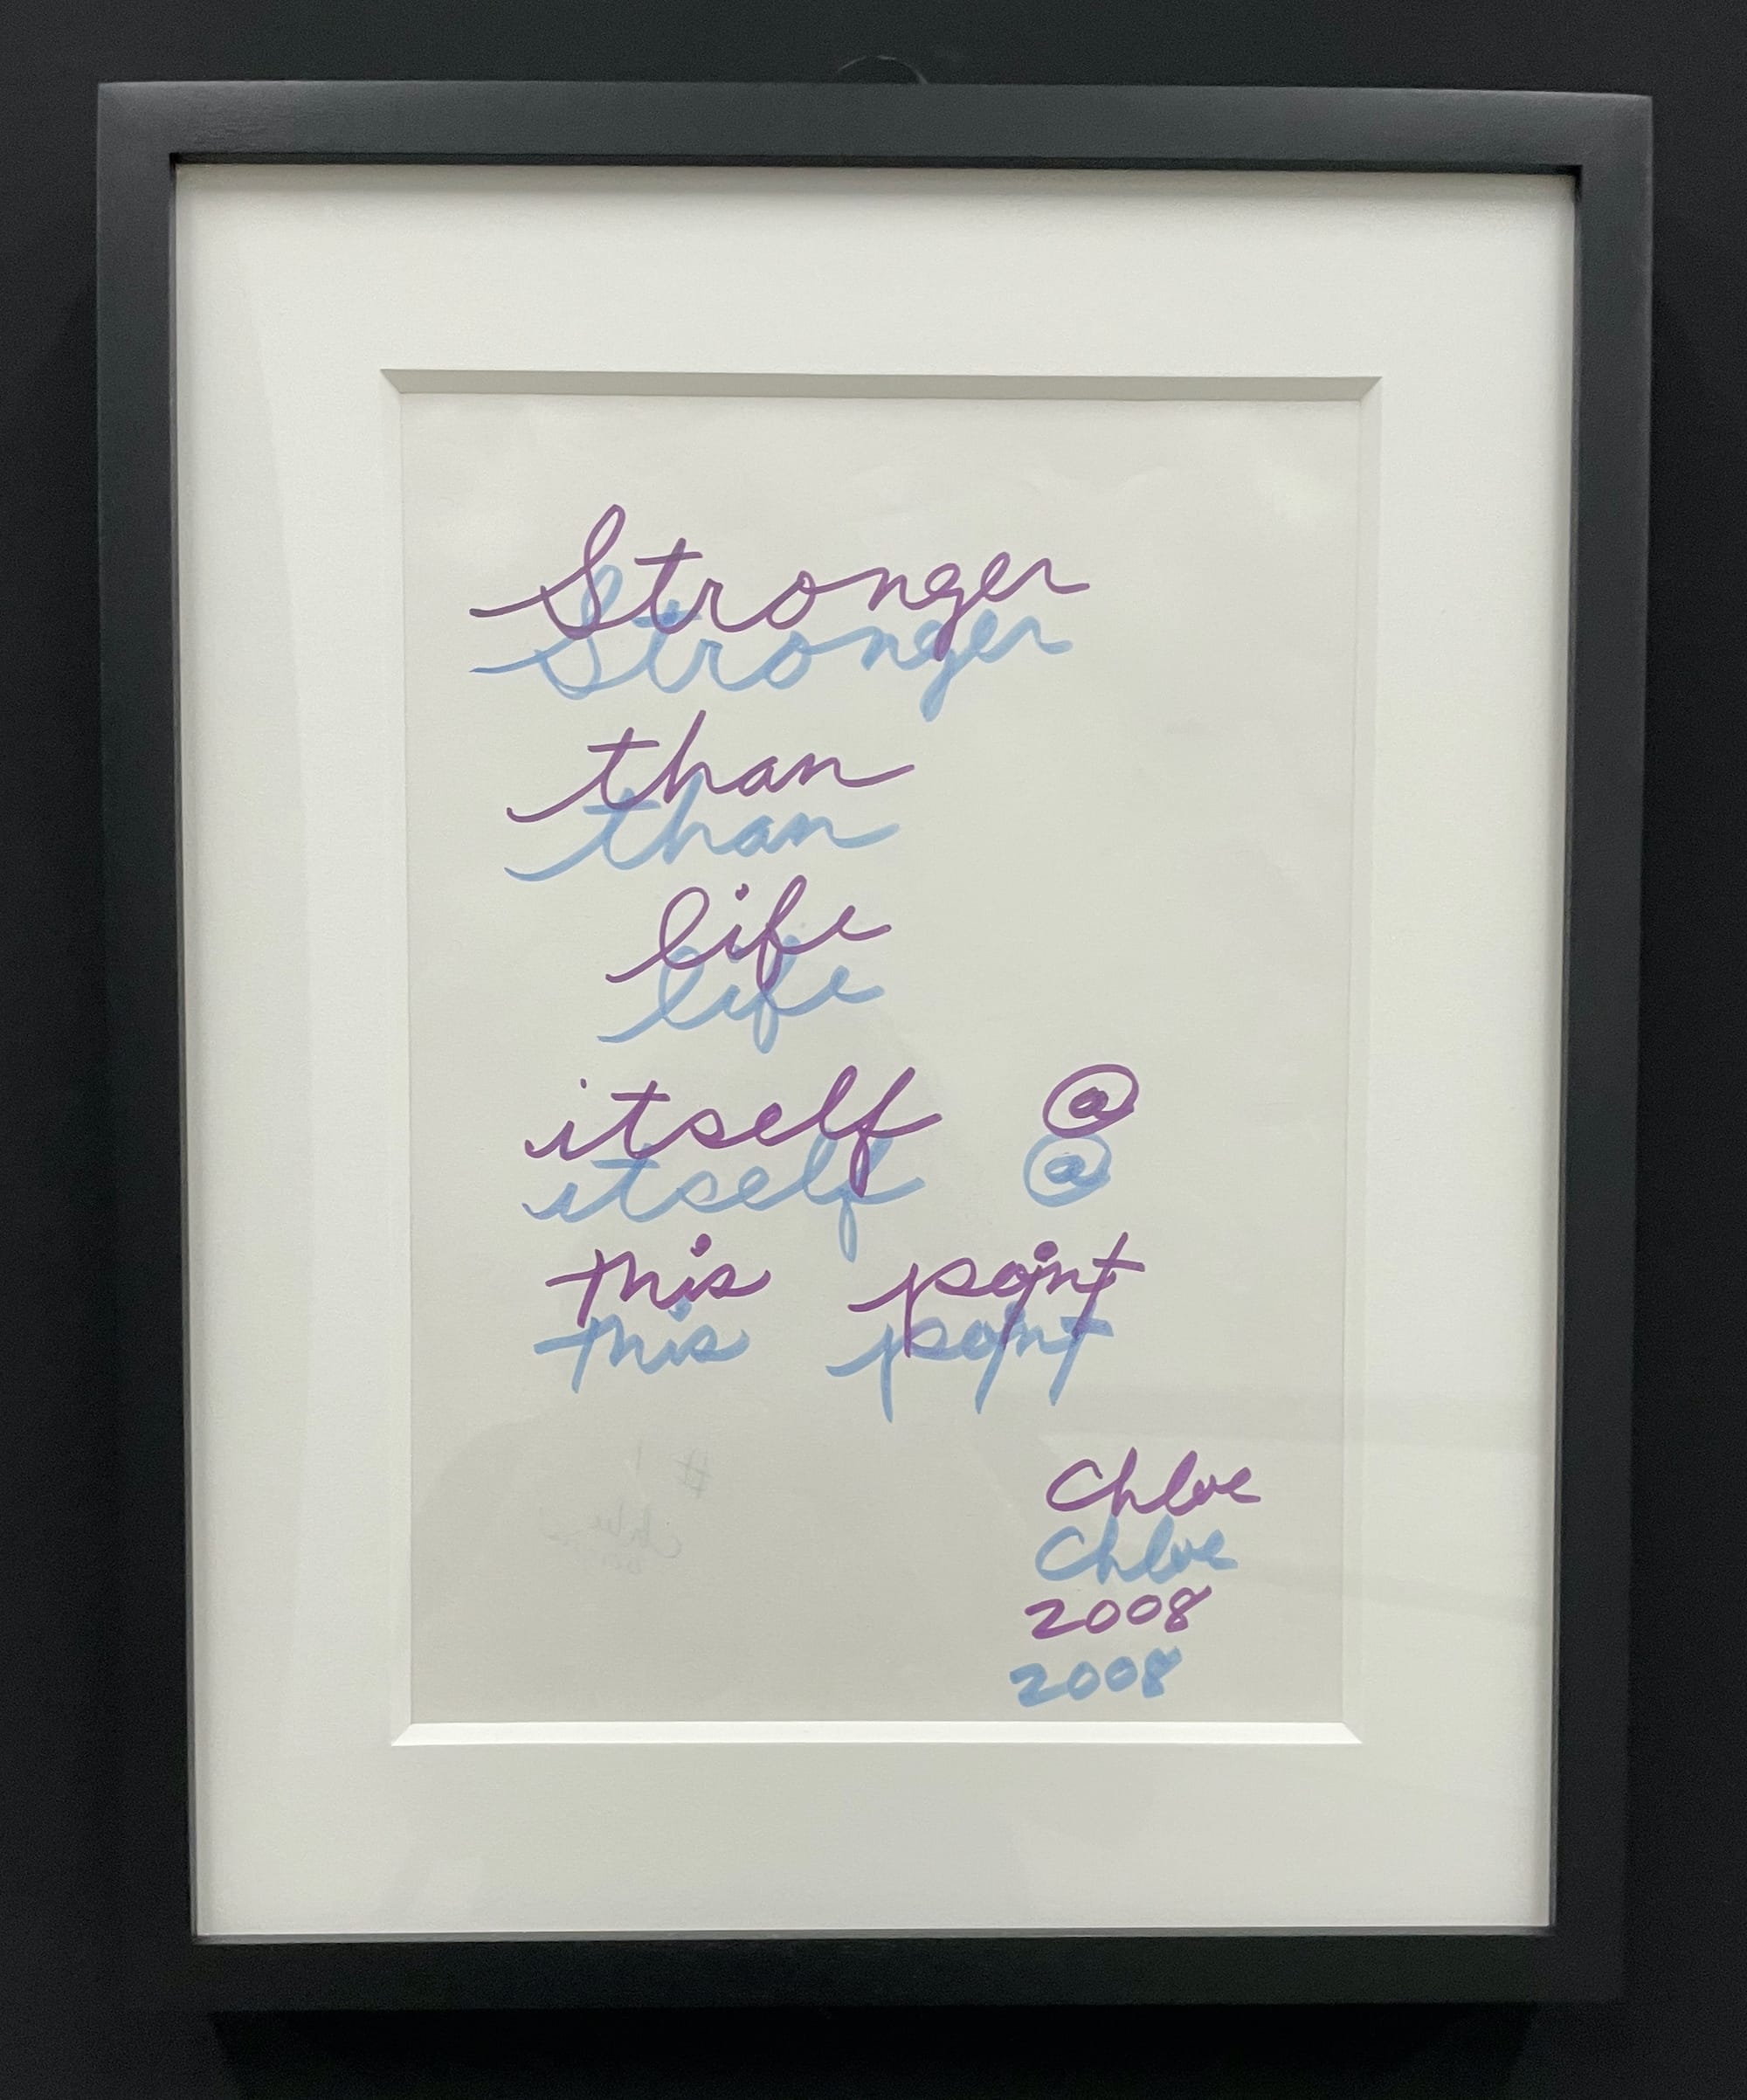 Stronger
Stronger
than
than
life
life
itself @
itself @
this point
this point
Chloe
Chloe
2008
2008